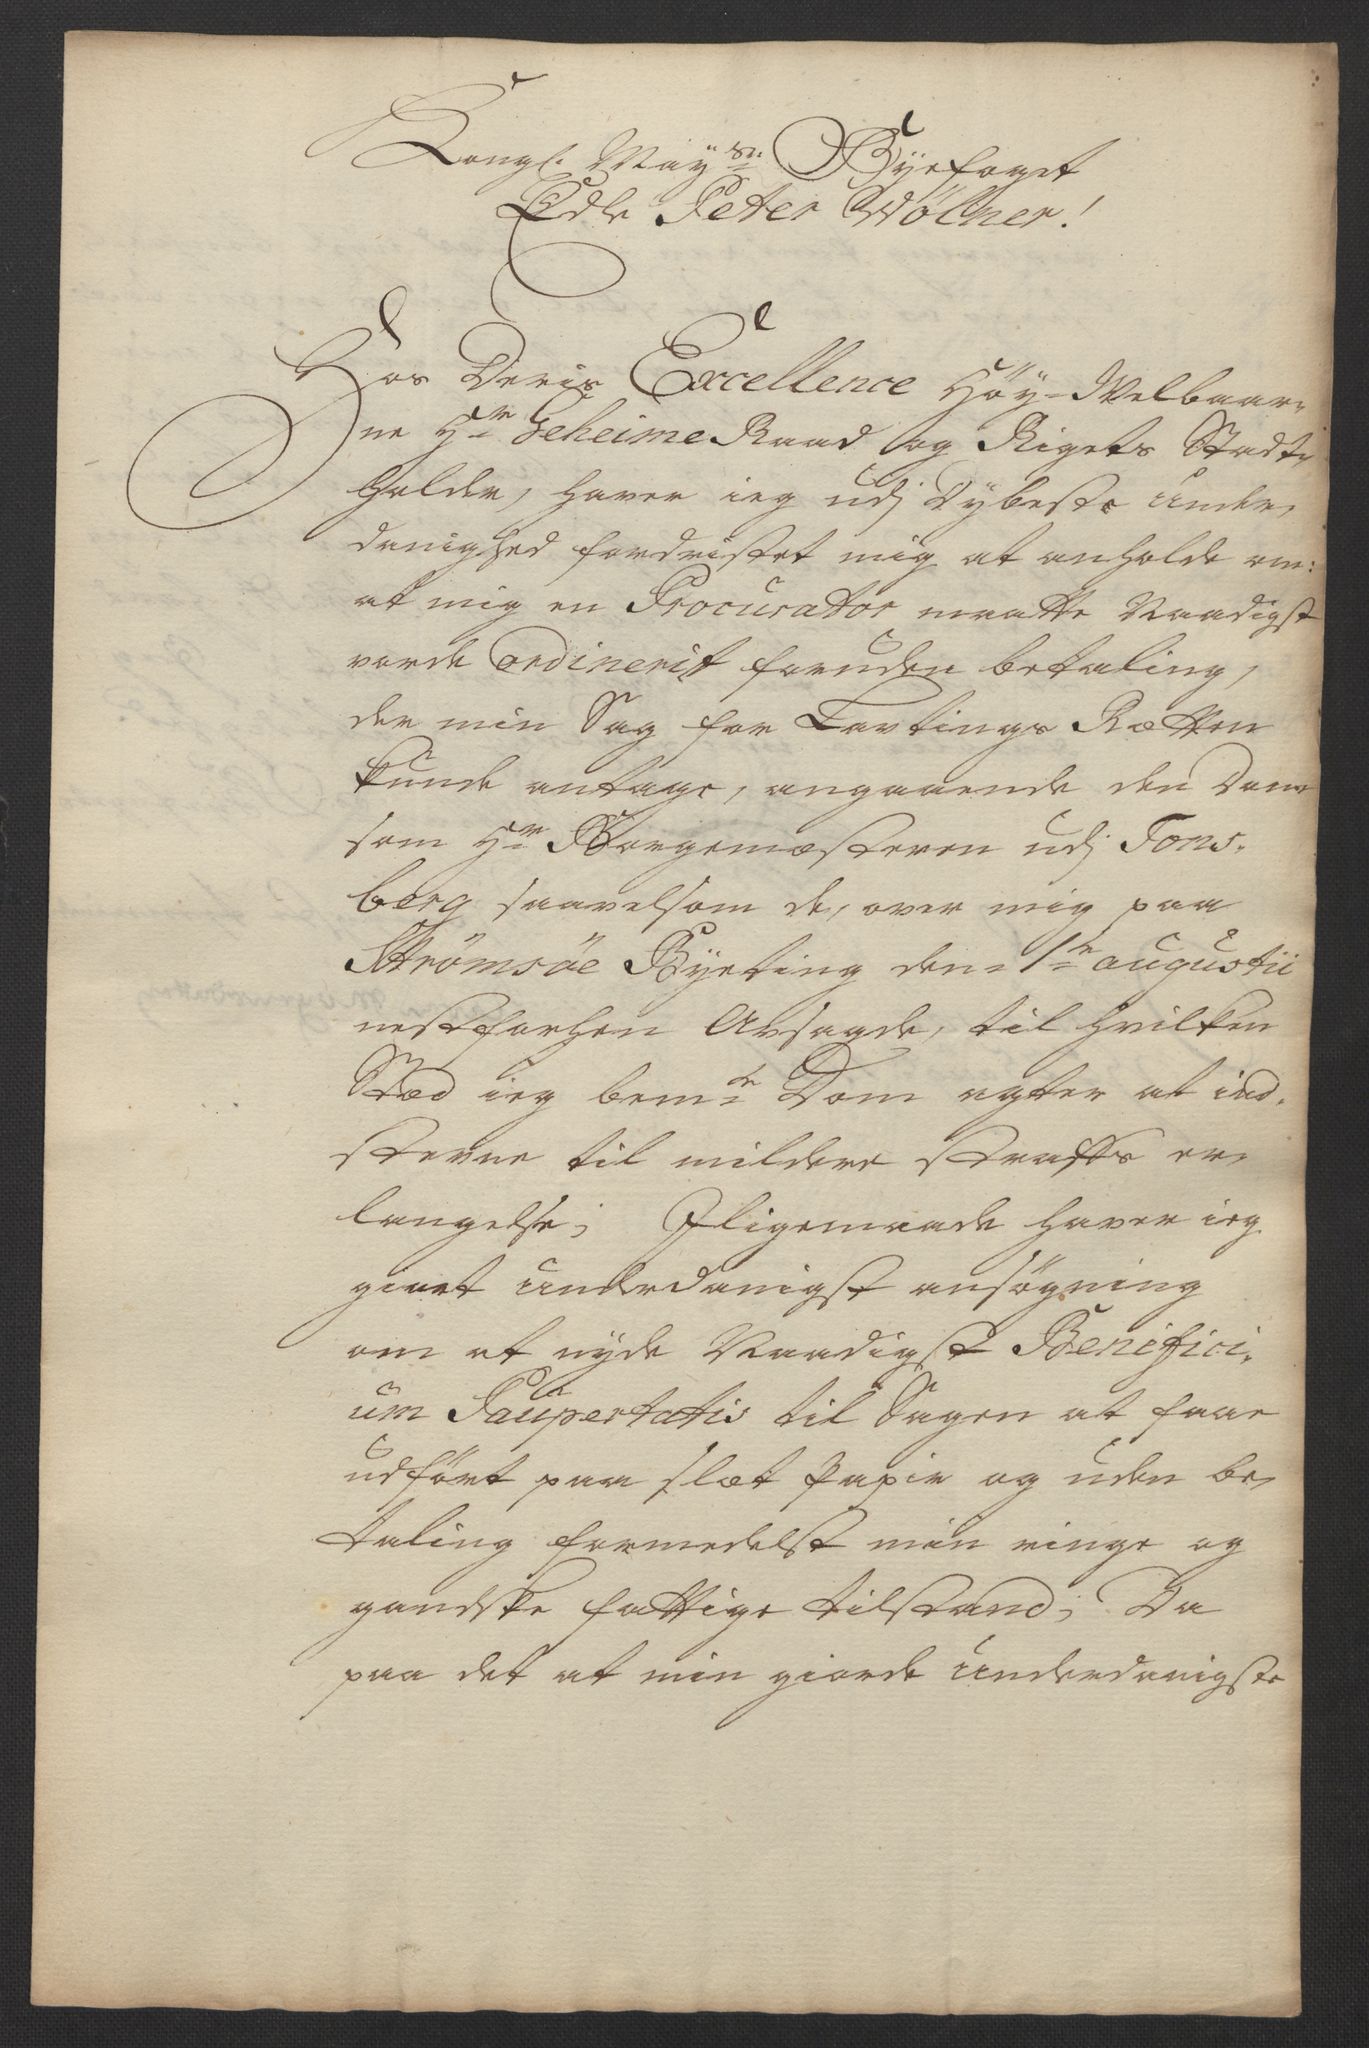 Kongl. May.ts Byefoget
Edle Peter Wölner!
Hos Deris Excellence Höy-Welbaar-
ne Hr Geheime Raad og Rigets Stadt-
holder, haver ieg udj Dybeste under-
danighed fordristet mig at anholde om:
at mig en Procurator maatte Naadigst
vorde ordinerit foruden betaling,
der min Sag for Lavtings Rætten
kunde antage, angaaende den Dom
som Hr Borgemæsteren udj Tons-
berg saavelsom de, over mig paa
Strömsöe Byeting den 1te augustii
nestforhen Avsagde, til hvilken
Stæd ieg bemte Dom agter at ind-
stevne til mildere straffs er-
langelse; Jligemaade haver ieg
givet underdanigst ansögning
om at nyde Naadigst Benifici-
um Paupertatis til Sagen at faae
udfört paa slæt Papir og uden be-
taling formedelst min ringe og
gandske fattige tilstand; Da
paa det at min giorde underdanigste